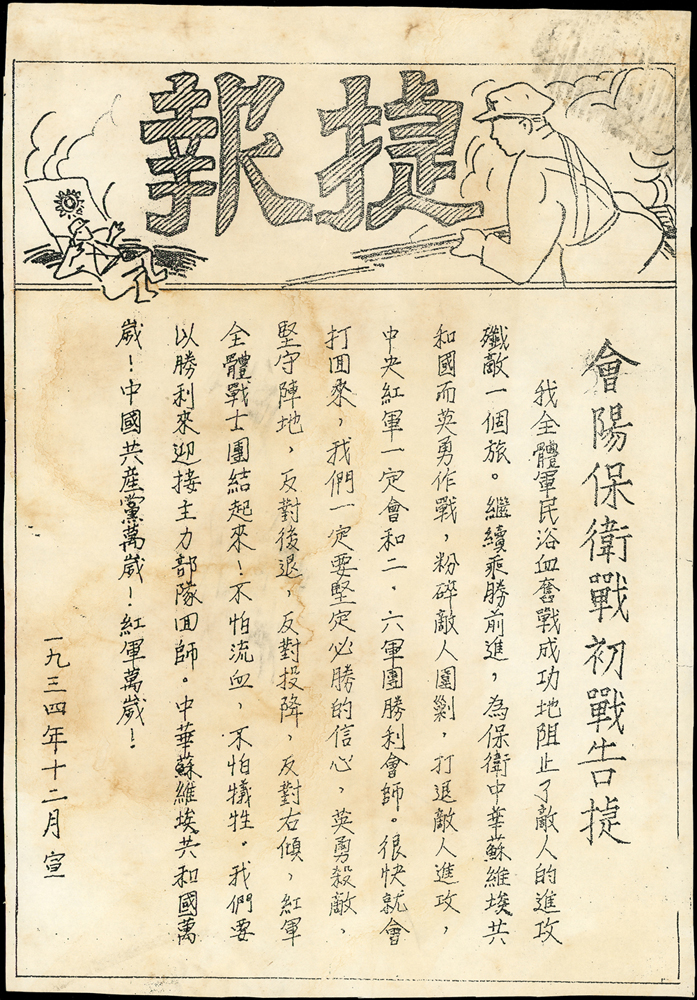 捷報
會陽保衛戰初戰告捷
我全體軍民浴血奮戰成功地阻止了敵人的進攻
殲敵一個旅。繼續乘勝前進，為保衛中華蘇維埃共
和國而英勇作戰，粉碎敵人圍剿，打退敵人進攻，
中央紅軍一定會和二．六軍團勝利會師。很快就會
打回來，我們一定要堅定必勝的信心，英勇殺敵，
堅守陣地，反對後退，反對投降，反對右傾，紅軍
全體戰士團結起來！不怕流血，不怕犧牲。我們要
以勝利來迎接主力部隊回師。中華蘇維埃共和國萬
歲！中國共產黨萬歲！紅軍萬歲！
一九三四年十二月宣